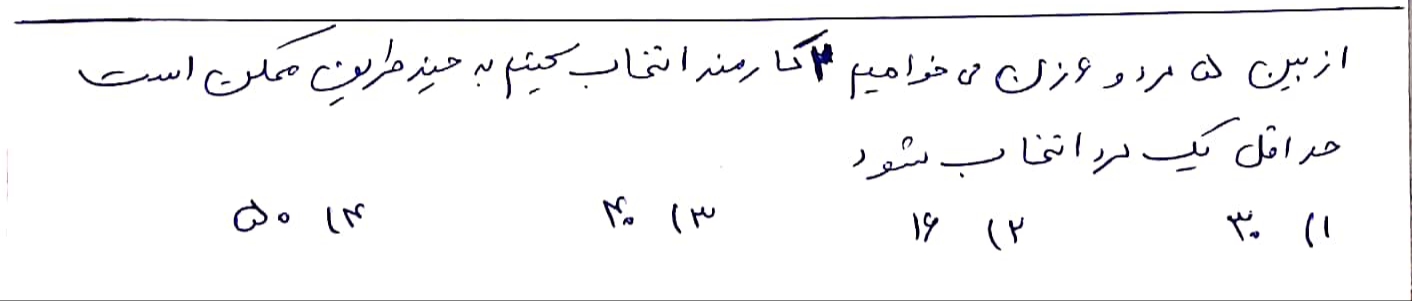 از بین ۵ مرد و ۶ زن می خواهیم ۲ کارمند انتخاب کنیم به چند طریق ممکن است
حداقل یک مرد انتخاب شود
۱) ۳۰ ۲) ۱۶ ۳) ۴۰ ۴) ۵۰